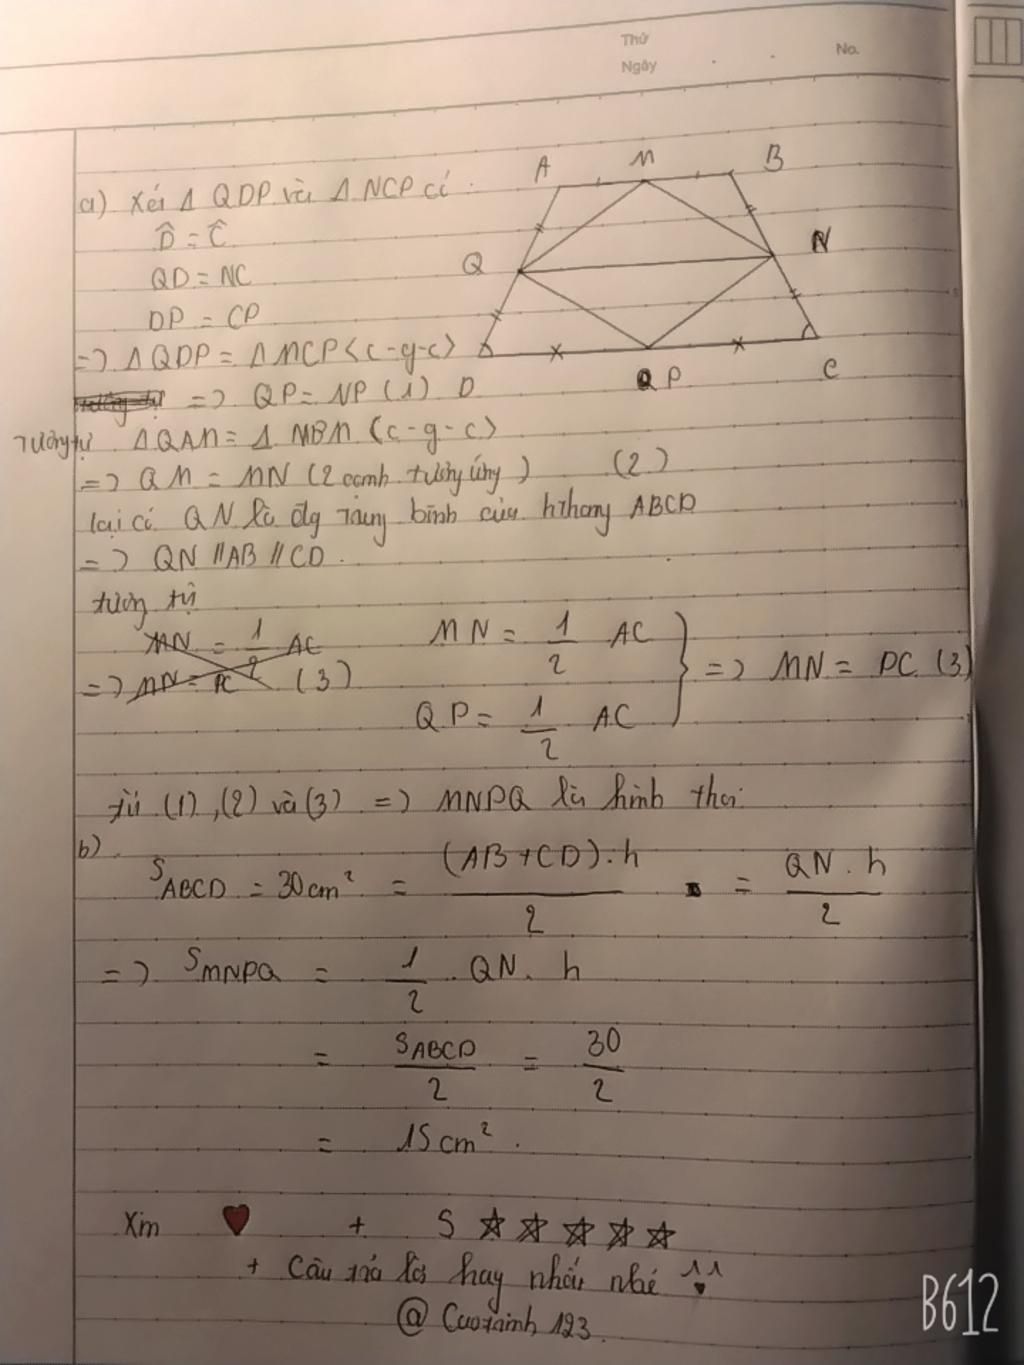 Thứ
Ngày
No.
A M B
a) Xét Δ QDP và Δ NCP có :
D̂ = Ĉ
Q N
QD = NC
DP = CP
=> ΔQDP = ΔNCP <c-g-c>
=> QP = NP (1) D
P C
Tương tự ΔQAM = Δ NBM (c-g-c)
=> QM = MN (2 cạnh tương ứng) (2)
lại có QN là đg trung bình của hthang ABCD
=> QN // AB // CD.
tương tự
MN = 1/2 AC
=> MN = PC (3)
MN = 1/2 AC
QP = 1/2 AC
} => MN = PC (3)
từ (1), (2) và (3) => MNPQ là hình thoi
b)
S ABCD = 30 cm² = (AB + CD) . h / 2 = QN . h / 2
=> S MNPQ = 1/2 . QN . h
= S ABCD / 2 = 30 / 2
= 15 cm² .
Xin ♥ + 5 ☆ ☆ ☆ ☆ ☆
+ Câu trả lời hay nhất nhé
B612